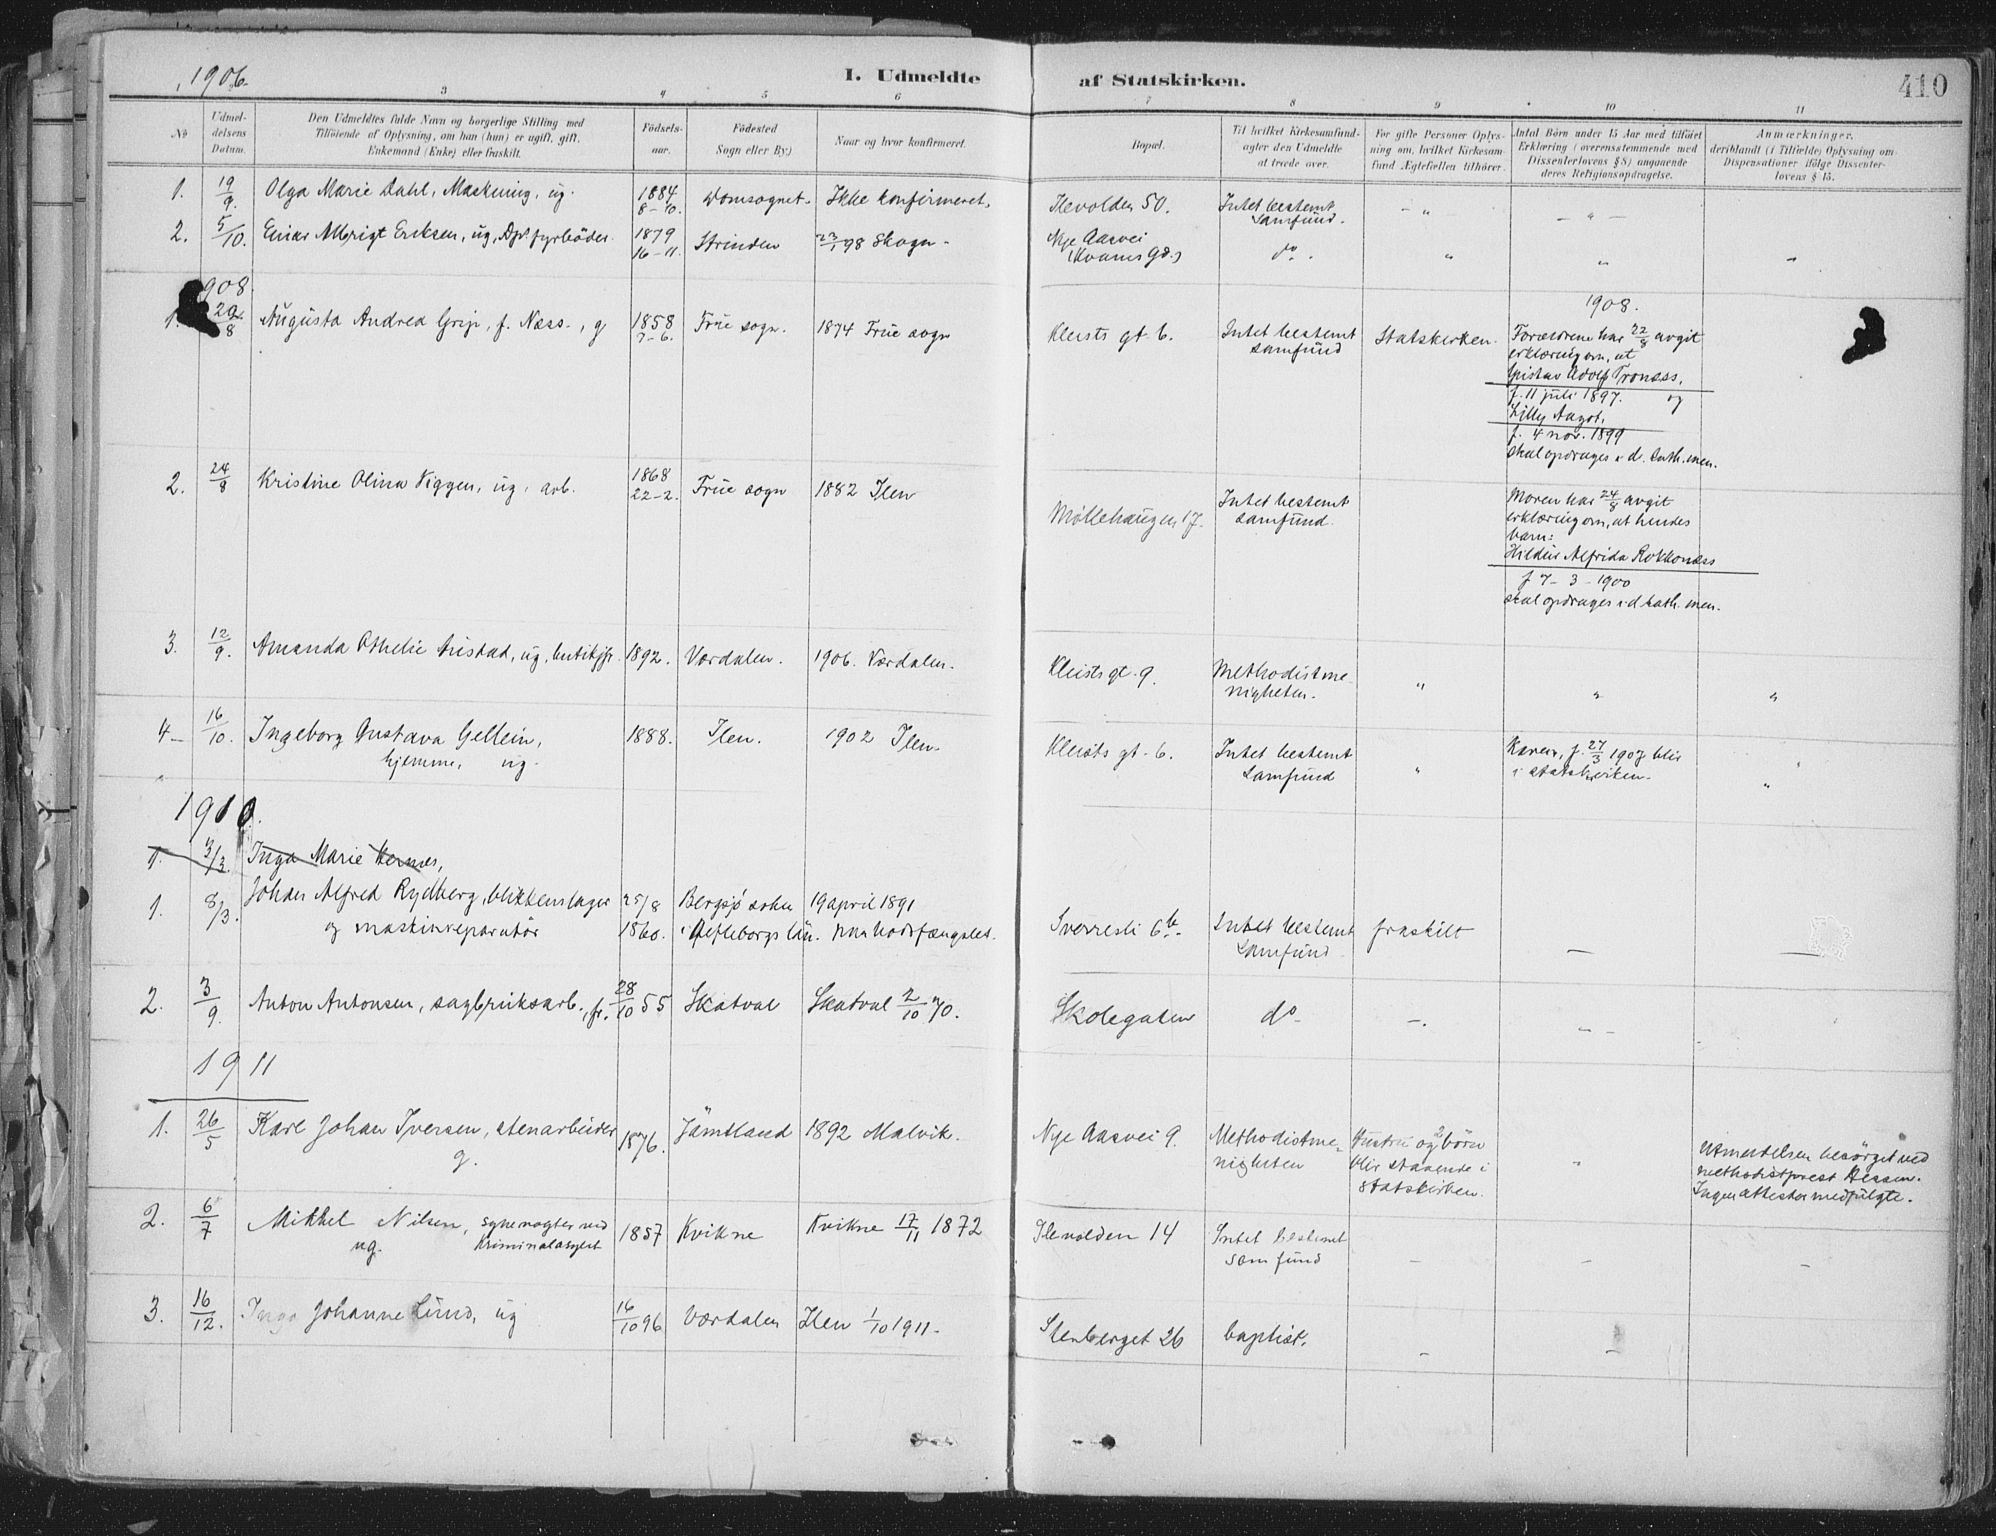 1906.
I. Udmeldte af Statskirken.
410
3 4 5 6 7 8 9 10 11
No
Udmel-
delsens
Datum.
Den Udmeldtes fulde Navn og borgerlige Stilling med
Tilføiende af Oplysning, om han (hun) er ugift, gift,
Enkemand (Enke) eller fraskilt.
Fødsels-
aar.
Fødested
Sogn eller By.)
Naar og hvor konfirmeret.
Bopæl.
Til hvilket Kirkesamfund-
agter den Udmeldte
at træde over.
For gifte Personer Oplys-
ning om, hvilket Kirkesam-
fund Ægtefællen tilhører.
Antal Børn under 15 Aar med tilføiet
Erklæring (overensstemmende med
Dissenterlovens § 8) angaaende
deres Religionsopdragelse.
Anmærkninger,
deriblandt (i Tilfælde) Oplysning om
Dispensationer ifølge Dissenter-
lovens § 15.
1. 19/9. Olga Marie Dahl, ug. 1884 8-10. Domsognet. Ikke konfirmeret. Ilevolden 50. Intet bestemt Samfund. - " - - " -
2. 5/10. Einar Albrigt Eriksen, ug, fyrbøder. 1879 16-11. Strinden 23/1 98 Skogn - Nye Aasvei (Kvams Gd.) do. " "
1908.
1. 20/8 Augusta Andrea Grip, f. Næss., g 1858 7-6. Frue sogn. 1874 Frue sogn Kleists gt. 6. Intet bestemt samfund Statskirken.
1908.
Forældrene har 22/8 avgit
erklæring om, at
Gustav Adolf Tronæss,
f. 11 juli 1897. og
Lilly Aagot,
f. 4 nov. 1899
skal opdrages i d. kath. men.
2. 24/8 Kristine Olina Viggen, ug, arb. 1868 22-2. Frue sogn 1882 Ilen Møllehaugen 17. Intet bestemt samfund.
Moren har 24/8 avgit
erklæring om, at hendes
barn:
Hildur Alfrida Rokkonæss
f 7-3-1900
skal opdrages i d kath. men.
3. 12/9. Amanda Othelie, ug, butikjfr. 1892. Værdalen. 1906. Værdalen. Kleists gt. 9. Methodistme-
nigheten. " " "
4- 16/10. Ingeborg Gustava Gellein, 1888. Ilen. 1902 Ilen. Kleists gt. 6. Intet bestemt Samfund " Karen, f. 27/3 1907 blir
hjemme, ug. i statskirken. "
1910.
1. 3/3. Inga Marie
1. 8/3. Johan Alfred Rydberg, blikkenslager 25/8 Bergsjö sokn 19 april 1891
og maskinreparatør 1860. i Gefleborgs län. paa bodsfængslet. Sverresli 6b. Intet bestemt Samfund fraskilt - -
2. 3/9. Anton Antonsen, sagbruksarb., fr. 28/10 55 Skatval Skatval 2/10 70. Skolegaten do - -. - -
1911
1. 26/5 Karl Johan Iversen, stenarbeider 1876. Jämtland 1892 Malvik. Nye Aasvei 9. Methodistme-
nigheten
g.
Hustru og 2 børn
blir staaende i
statskirken.
"
Utmeldelsen besørget ved
methodistprest
Ingen attester medfulgte.
2. 6/7 Mikkel Nilsen, sykevogter ved 1857 Kvikne Kvikne 17/11 1872 Ilevolden 14 Intet bestemt samfund - - -
ug. Kriminalasylet
3. 16/12. Inga Johanne Lund, ug 16/10 96 Værdalen Ilen 1/10 1911. Stenberget 26 baptist. - -